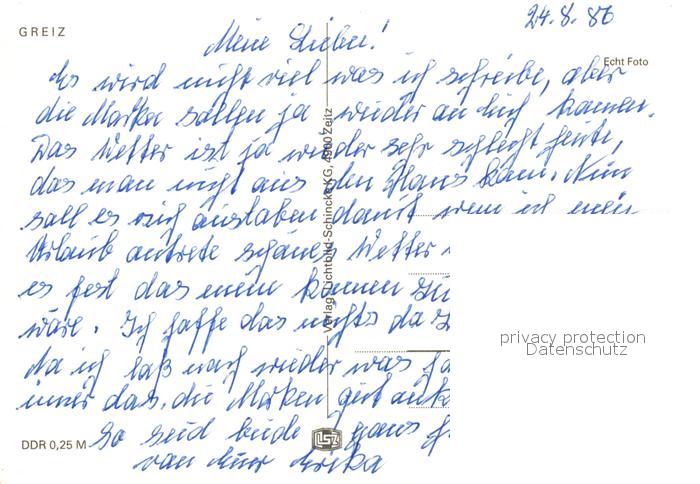 GREIZ
24.8.86
Meine Lieben!
Echt Foto
Es wird nicht viel was ich schreibe, aber
die Marken sollen ja wieder an Euch kommen.
Das Wetter ist ja wieder sehr schlecht heute,
das man nicht aus den Haus kam. Nun
soll es sich austoben damit wenn ich mein
Urlaub antrete schönes Wetter
es fest das mein kommen
wäre. Ich hoffe das nichts da
Na ich laß noch wieder was
immer das, die Marken gut
So seid beide ganz
von Eurer Erika
Verlag Lichtbild-Schincke KG, 4900 Zeitz
LSZ
DDR 0,25 M
privacy protection
Datenschutz